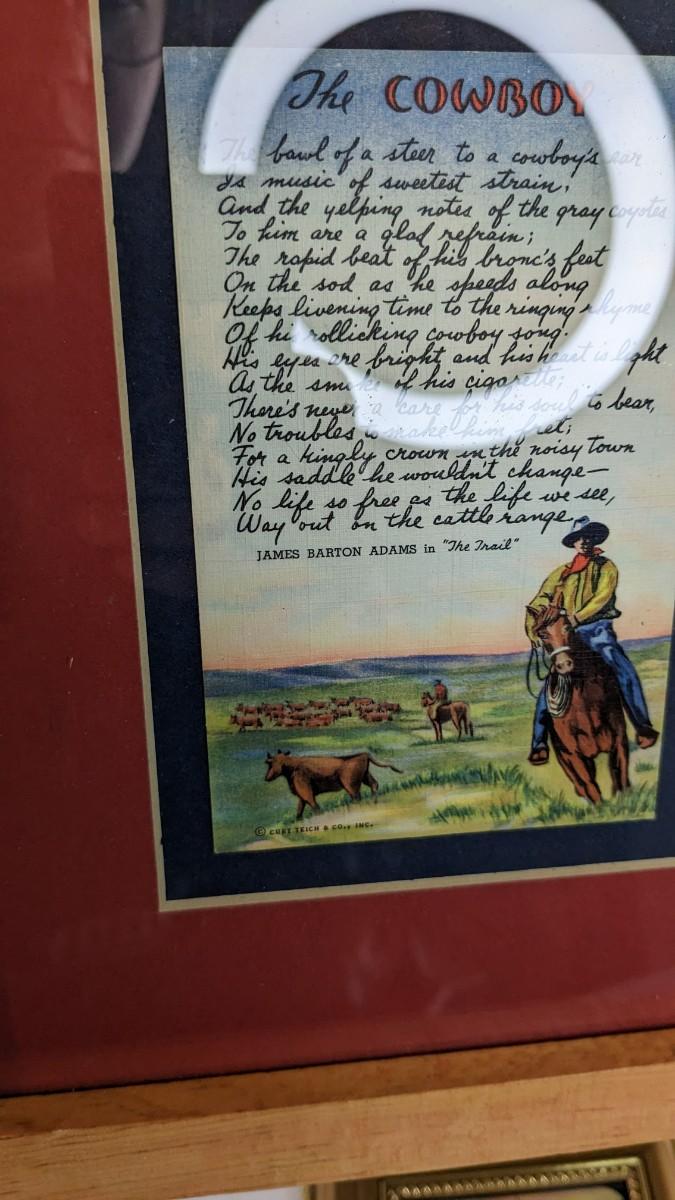 The COWBOY
The bawl of a steer to a cowboy's ear
Is music of sweetest strain;
And the yelping notes of the gray coyotes
To him are a glad refrain;
The rapid beat of his bronc's feet
On the sod as he speeds along
Keeps livening time to the ringing rhyme
Of his rollicking cowboy song.
His eyes are bright and his heart is light
As the smoke of his cigarette;
There's never a care for his soul to bear,
No troubles to make him fret;
For a kingly crown in the noisy town
His saddle he wouldn't change—
No life so free as the life we see,
Way out on the cattle range.
JAMES BARTON ADAMS in "The Trail"
© CURT TEICH & CO., INC.